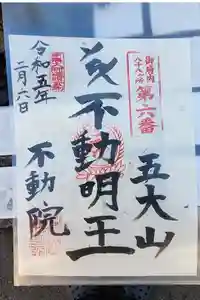 御府内
八十八ヶ所
第六番
五大山
不動明王
令和五年
二月六日
不動院